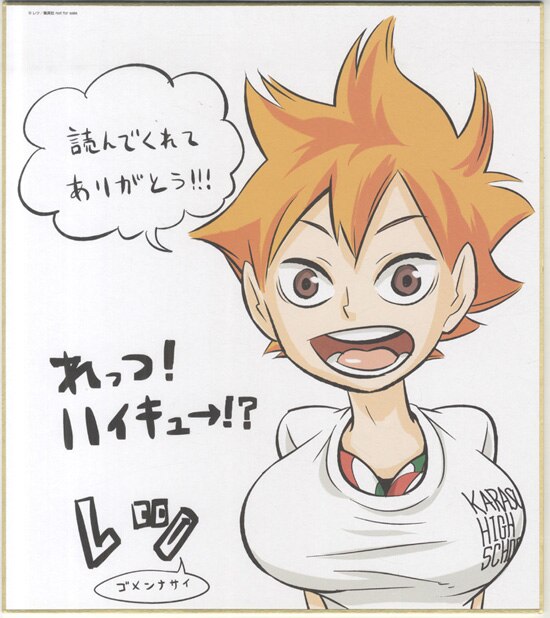 © レツ／集英社 not for sale
読んでくれて
ありがとう!!!
れっつ!
ハイキュー!?
レツ
ゴメンナサイ
KARASU
HIGH
SCHOO